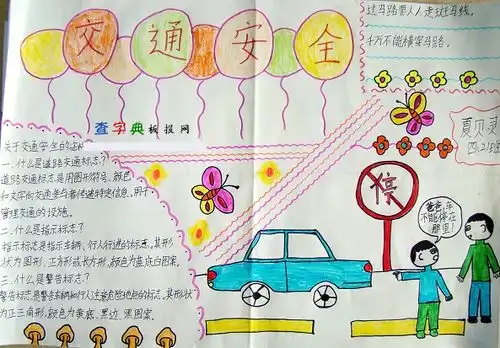 交通安全
查字典板报网
过马路要人人走斑马线。
千万不能横穿马路。
夏贝录
四、2)班
关于交通安全的
一.什么是道路交通标志?
道路交通标志是用图形符号、颜色
和文字向交通参与者传递特定信息,用于
管理交通的设施。
二.什么是指示标志?
指示标志是指示车辆、行人行进的标志,其形
状为圆形、正方形或长方形,颜色为蓝底白图案。
三.什么是警告标志?
警告标志是警告车辆和行人注意危险地点的标志,其形状
为正三角形,颜色为黄底、黑边、黑图案。
停
爸爸,车
不能停在
那里!